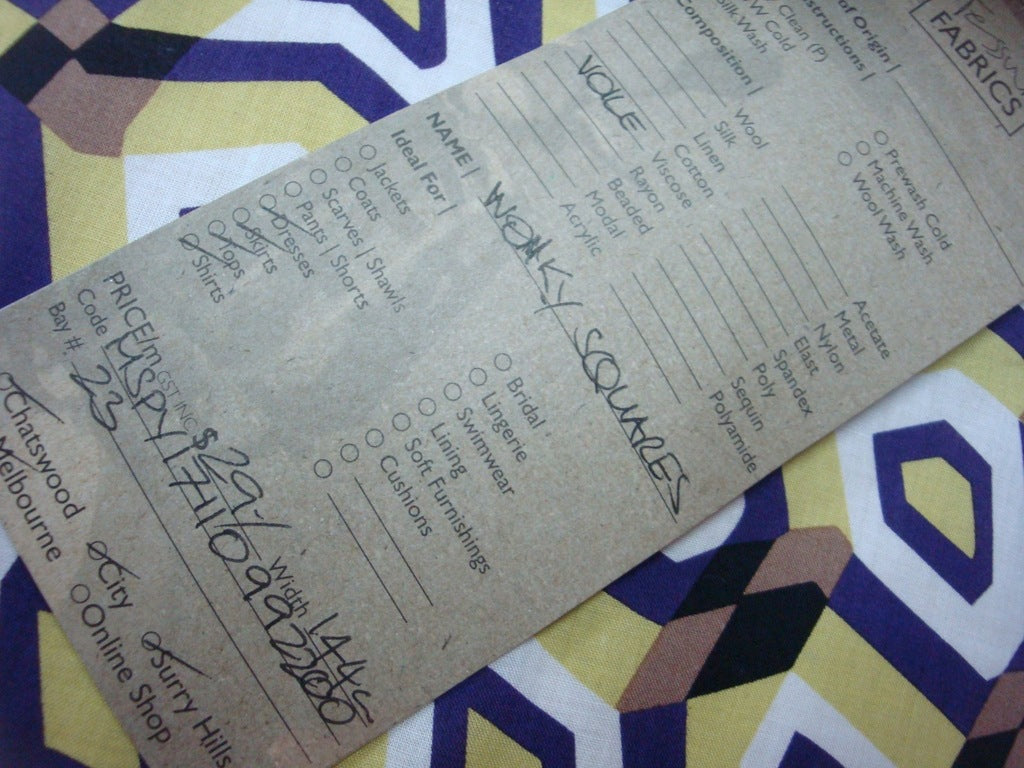 Tessu
FABRICS
of Origin |
structions |
Clean (P)
W Cold
Silk Wash
Prewash Cold
Machine Wash
Wool Wash
Composition |
Wool
Silk
Linen
Cotton
VOLE Viscose
Rayon
Beaded
Modal
Acrylic
Acetate
Metal
Nylon
Elast
Spandex
Poly
Sequin
Polyamide
NAME | WONKY SQUARES
Ideal For |
Jackets
Coats
Scarves | Shawls
Pants | Shorts
Dresses
Skirts
Tops
Shirts
Bridal
Lingerie
Swimwear
Lining
Soft Furnishings
Cushions
PRICE/m GST INC $29-/ Width 144c
Code MSPY17110992200
Bay #. 23
Chatswood City Surry Hills
Melbourne Online Shop